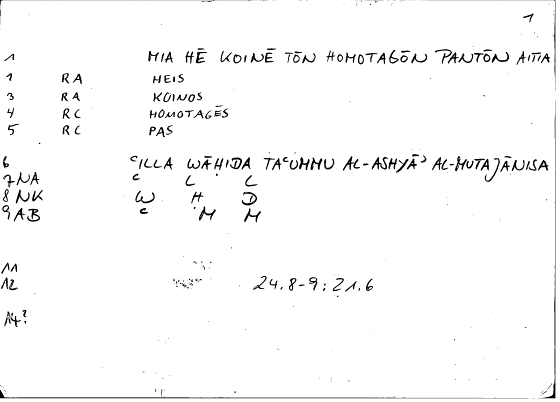 1
1 MIA HĒ KOINĒ TŌN HOMOTAGŌN PANTŌN AITIA
1 RA HEIS
3 RA KOINOS
4 RC HOMOTAGĒS
5 RC PAS
6 ᶜILLA WĀḤIDA TAᶜUMMU AL-ASHYĀʾ AL-MUTAJĀNISA
7 NA ᶜ L L
8 NK W Ḥ D
9 AB ᶜ M M
11
12 24.8-9 : 21.6
14?